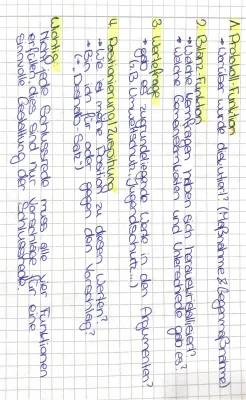 1. Protokoll-Funktion
→ Worüber wurde debattiert? (Maßnahme & Gegenmaßnahme)
2. Bilanz-Funktion
→ Welche Kernfragen haben sich herauskristallisiert?
→ Welche Gemeinsamkeiten und Unterschiede gab es?
3. Wertefrage
→ gab es zugrundeliegende Werte in den Argumenten?
(z.B. Umweltschutz, Jugendschutz...)
4. Positionierung/Zuspitzung
→ Wie stehe ich zu diesen Werten?
→ Bin ich für oder gegen den Vorschlag?
(→ "Deshalb-Satz")
Wichtig:
Nicht jede Schlussrede muss alle vier Funktionen
erfüllen, dies sind nur Vorschläge für eine
sinnvolle Gestaltung der Schlussrede.